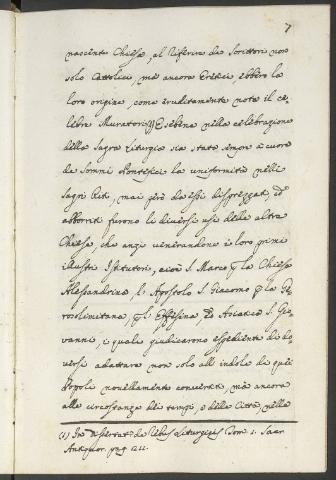 7
nascente Chiesa, al riferire de Scrittori non
solo Cattolici, mà ancora Eretici, ebbero la
loro origine, come eruditamente nota il ce-
lebre Muratori(1) E sebene nella celebrazione
della Sagra Liturgia sia stata sempre a cuore
de Sommi Pontefici la uniformità nelli
Sagri Riti, mai però da essi disprezzati, ed
abborriti furono li diversi usi delle altre
Chiese, che anzi venerandone i loro primi
illustri Istitutori, cioè S. Marco p la Chiesa
Alessandrina, l' Apostolo S. Giacomo p la Ge-
rosolimitana, p l' Effesina, ed Asiatica S. Gio-
vanni, i quali giudicarono espediente di do-
versi adattare non solo all' indole di quei
Popoli novellamente convertiti, mà ancora
alle circostanze dei tempi, e delle Città, nelle
(1) In Dissertat. de Rebus Liturgicis Tom. 1. Sacr.
Antiquor. pag.